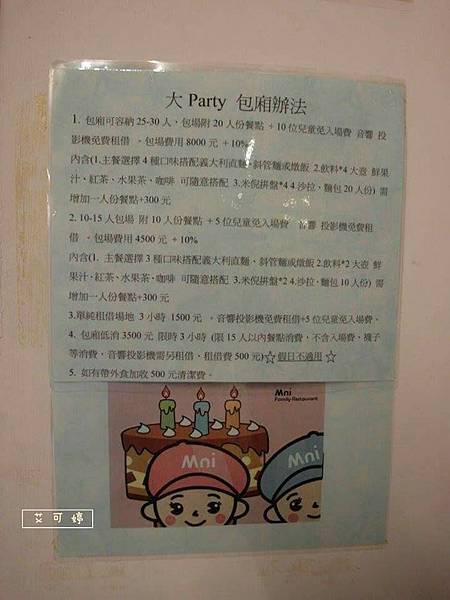 大 Party 包廂辦法
1. 包廂可容納 25-30 人，包場附 20 人份餐點 + 10 位兒童免入場費 音響 投
影機免費租借 。包場費用 8000 元 + 10%
內含(1.主餐選擇 4 種口味搭配義大利直麵、斜管麵或燉飯 2.飲料*4 大壺 鮮果
汁、紅茶、水果茶、咖啡 可隨意搭配 3.米倪拼盤*4 4.沙拉、麵包 20 人份) 需
增加一人份餐點+300 元
2. 10-15 人包場 附 10 人份餐點 + 5 位兒童免入場費 音響 投影機免費租
借 。包場費用 4500 元 + 10%
內含(1. 主餐選擇 3 種口味搭配義大利直麵、斜管麵或燉飯 2.飲料*2 大壺 鮮
果汁、紅茶、水果茶、咖啡 可隨意搭配 3.米倪拼盤*2 4.沙拉、麵包 10 人份) 需
增加一人份餐點+300 元
3.單純租借場地 3 小時 1500 元 。音響投影機免費租借+5 位兒童免入場費、
4. 包廂低消 3500 元 限時 3 小時 (限 15 人以內餐點消費，不含入場費、襪子
等消費，音響投影機需另租借，租借費 500 元)☆假日不適用☆
5. 如有帶外食加收 500 元清潔費。
Mni
Family Restaurant
Mni
Mni
艾可婷